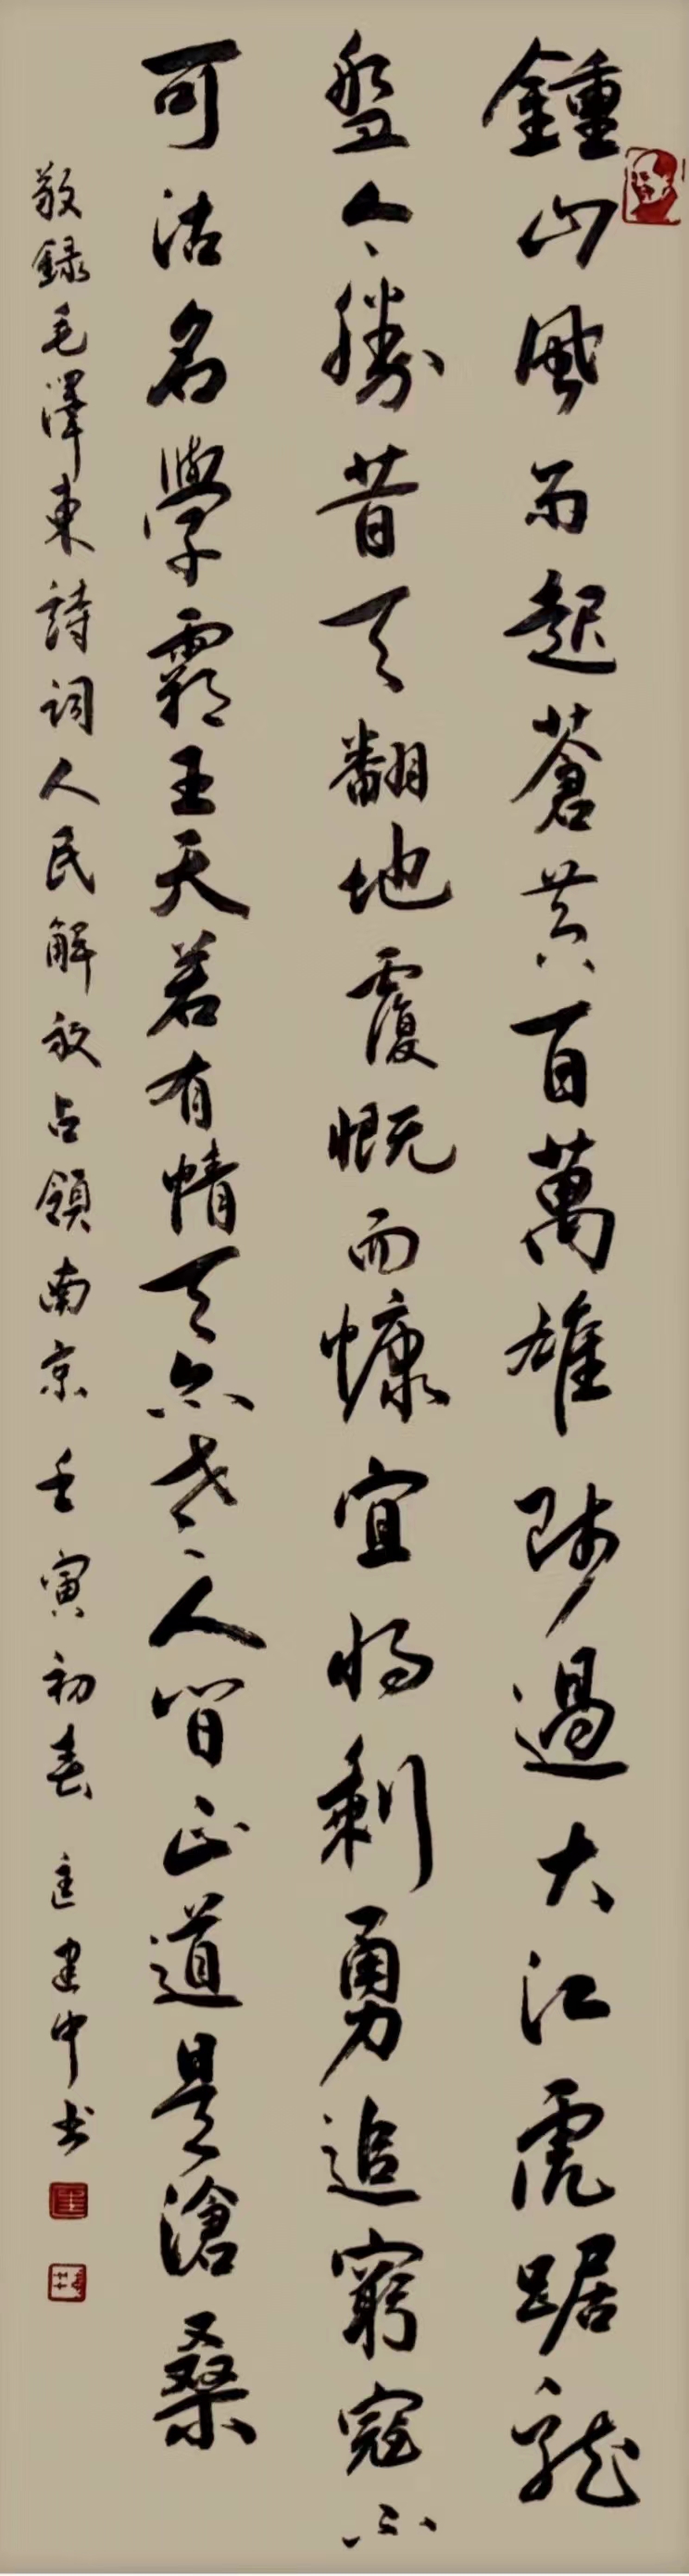 鍾山風雨起蒼黄百萬雄師過大江虎踞龍
盤今勝昔天翻地覆慨而慷宜将剩勇追窮寇不
可沽名學霸王天若有情天亦老人間正道是滄桑
敬録毛澤東詩詞人民解放占領南京 壬寅初春 匡建中书